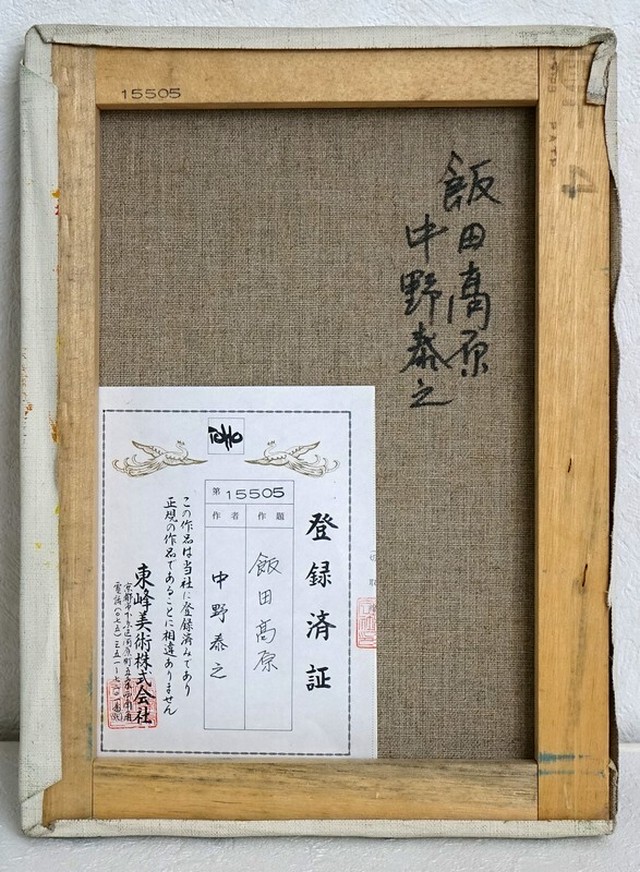 15505
飯田高原
中野泰之
TOHO
登録済証
第15505
作題
飯田高原
作者
中野泰之
この作品は当社に登録済みであり
正規の作品であることに相違ありません
東峰美術株式会社